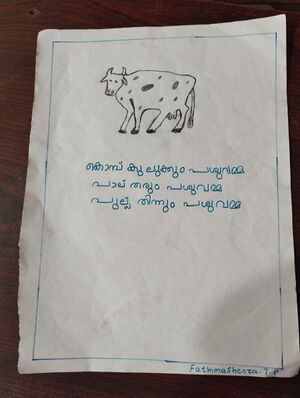 കൊമ്പ് കുലുക്കും പശുവമ്മ
പാല് തരും പശുവമ്മ
പുല്ല് തിന്നും പശുവമ്മ
Fathima Shenza. T.P